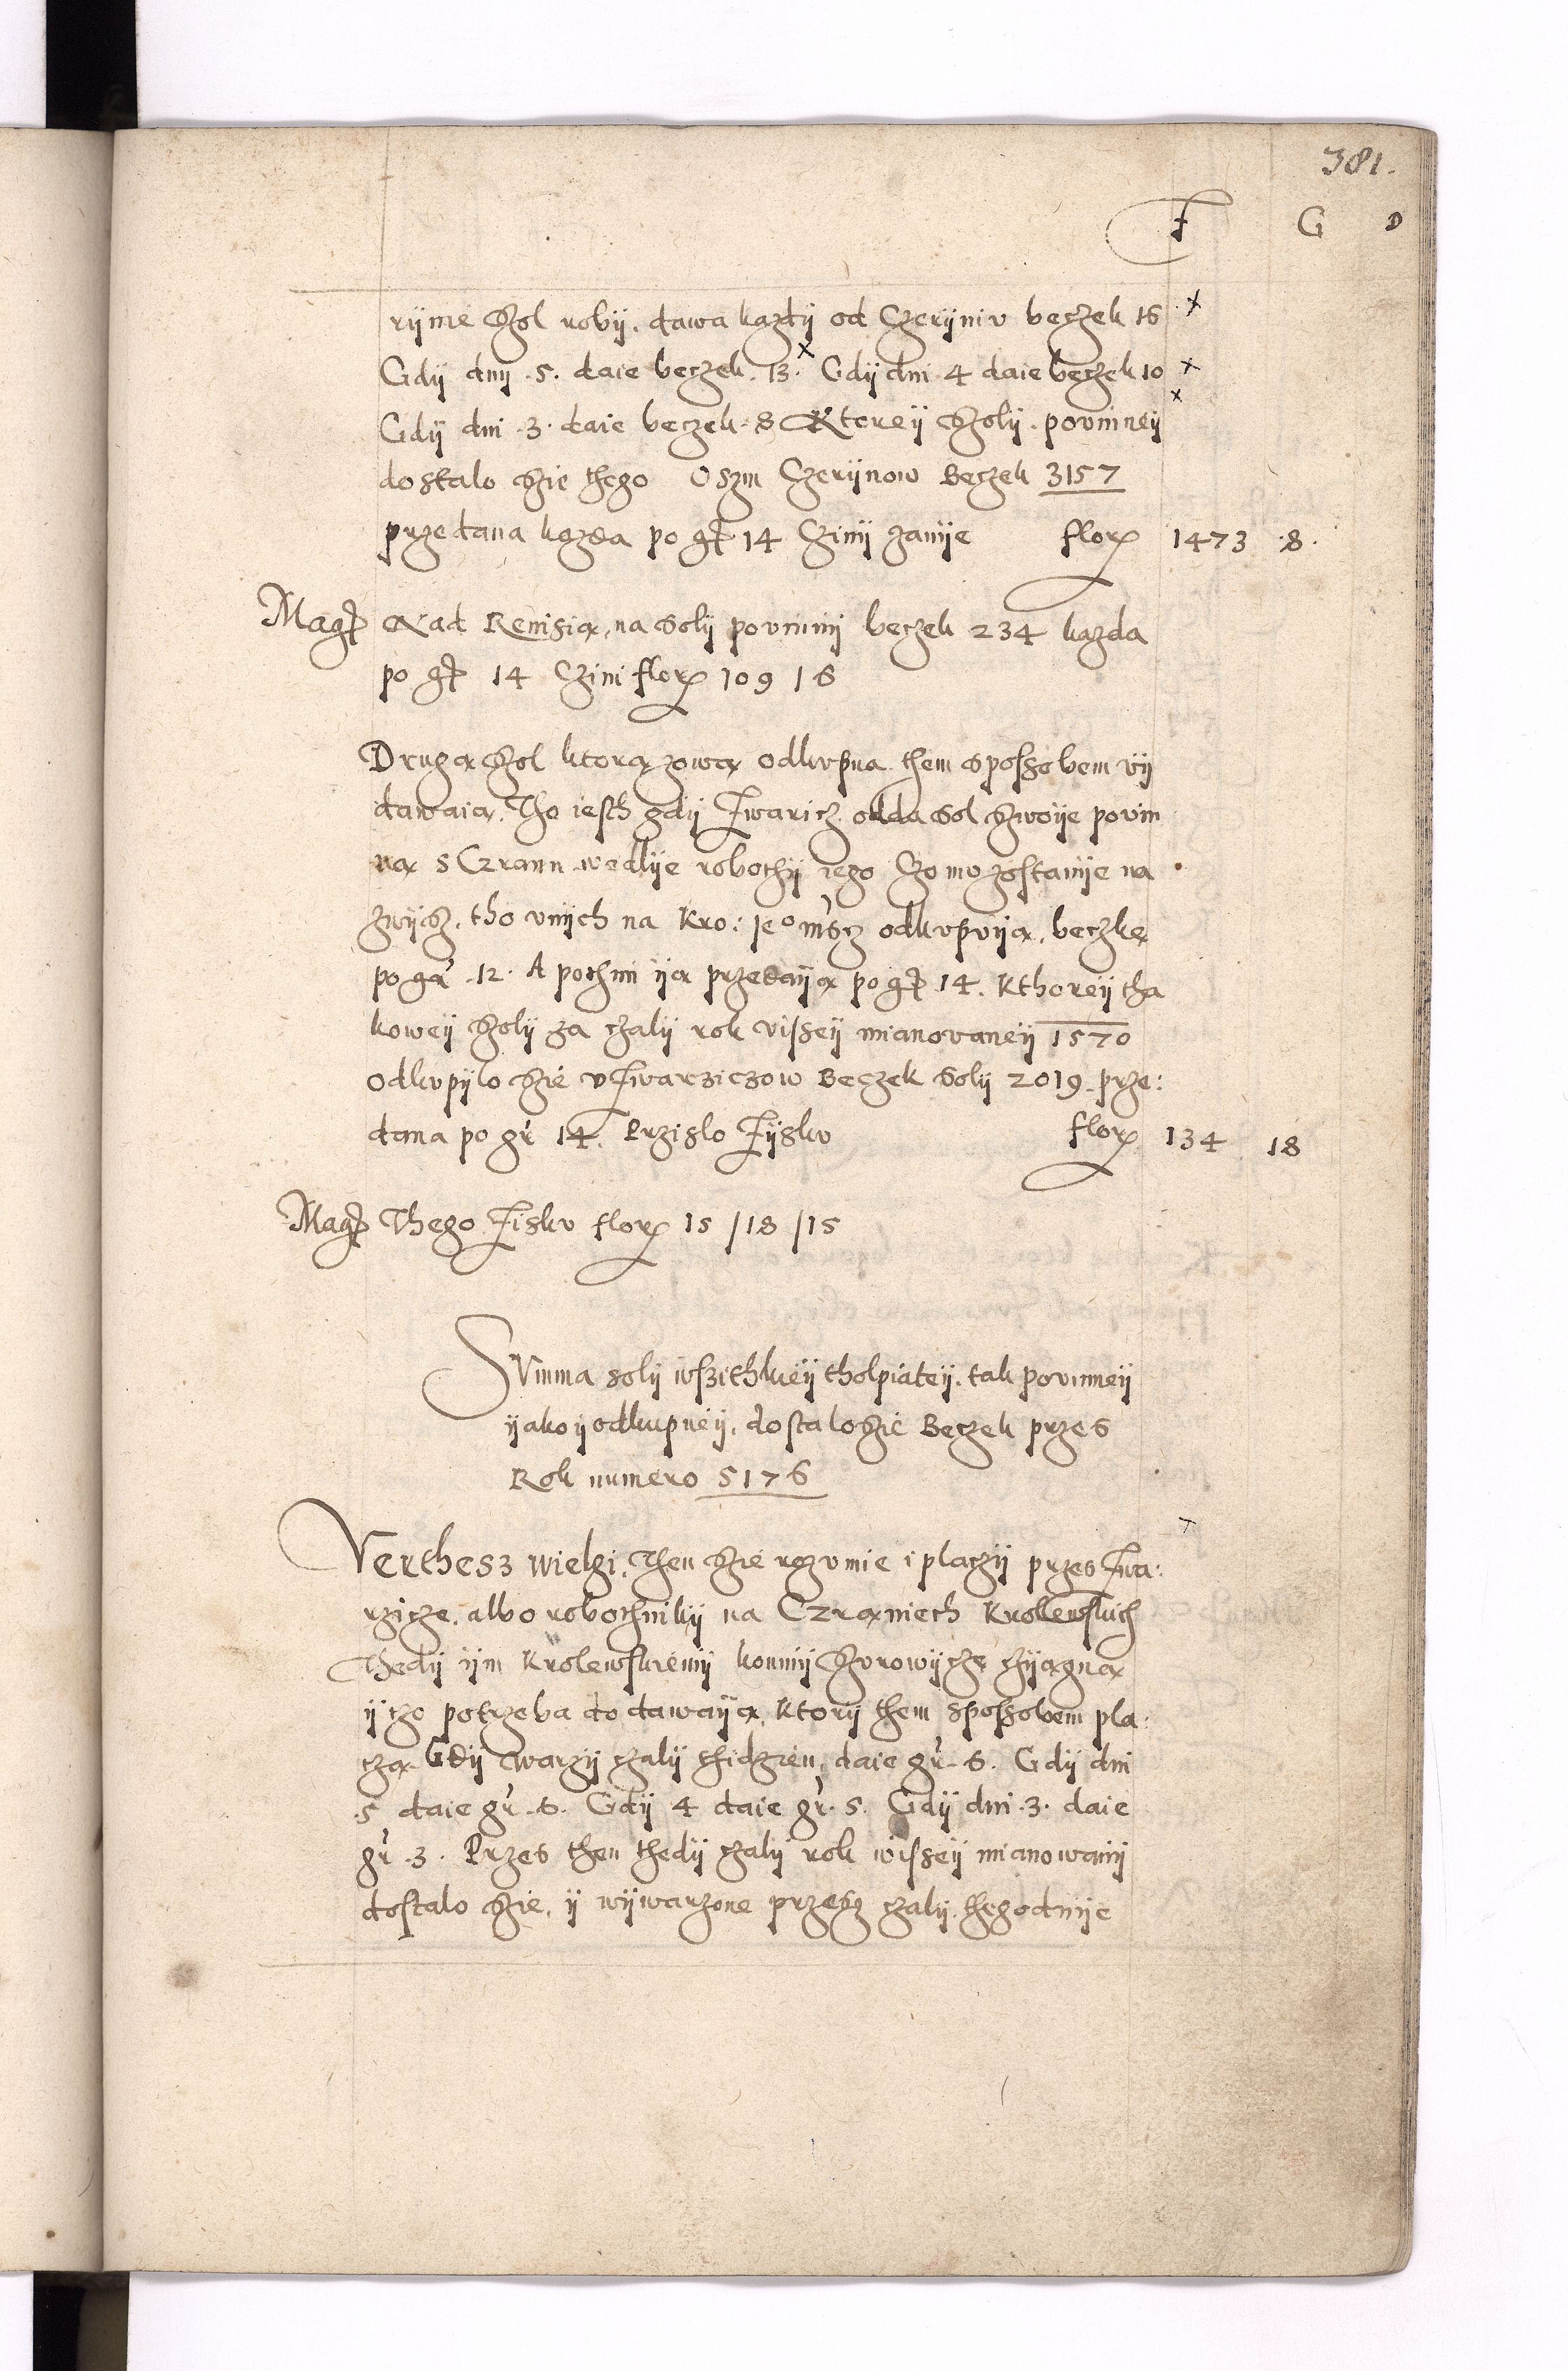 381.
F G D
rijnie Szol robij. dawa kazdij od Czerijniv beczek 16
Gdij dnij .5. daie beczek. 13. Gdij dni 4 daie beczek 10
Gdij dni .3. daie beczek .8 Ktoreij Szolij. povinneij
dostalo Szie thego Oszm Czerijnow Beczek 3157
przedana kazda po gr 14 Czinij zanije flor 1473 .8.
Magr Exad Remisia, na Solij povinnij beczek 234 kazda
po gr 14 Czini flor 109 16
Druga Szol ktora zowa odkvpna them sposzobem vij
dawaia. Tho iesth gdij Twaricz. odda Sol Szwoije povin
na s Czrann wedlije robothij iego Czo mo zostanije na
zwijsz. tho vnijch na Kro: Jeo mscz odkvpvija, beczke
po gr .12. A pothim ija przedaija po gr 14. Kthoreij tha
koweij Szolij za czalij rok visseij mianovaneij 1570
odkvpijlo Szie v Twarziczow Beczek Solij 2019. prze:
dana po gr 14. Przislo Zijskv flor 134 18
Magr Thego Ziskv flor 15 / 18 / 15
SVmma solij wszithkieij tholpiateij. tak povinneij
ijako ij odkupneij, dostalo Szie Beczek przes
Rok numero 5176
Verthesz wielgi. Then Szie rozvmie i placzij przes Twa:
rzicze. albo robothnikij na Czraniech Krolewskich
Thedij ijm Krolewskiemij konmij Szvrowijcze czijagna
ij czo potrzeba dodawaija, Ktorij them sposzobem pla:
cza. Gdij warzij czalij thidzien, daie gr. 6. Gdij dni
.5 daie gr .6. Gdij 4 daie gr. 5. Gdij dni .3. daie
gr .3. Przes then thedij czalij rok wisseij mianowanij
dostalo Szie, ij wijwarzone przesz czalij. thegodnije